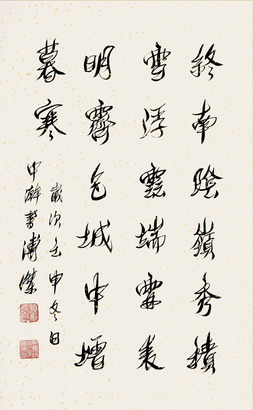 終南陰嶺秀積
雪浮雲端霖表
明霽色城中增
暮寒
歲次壬申冬日
中澣書溥傑